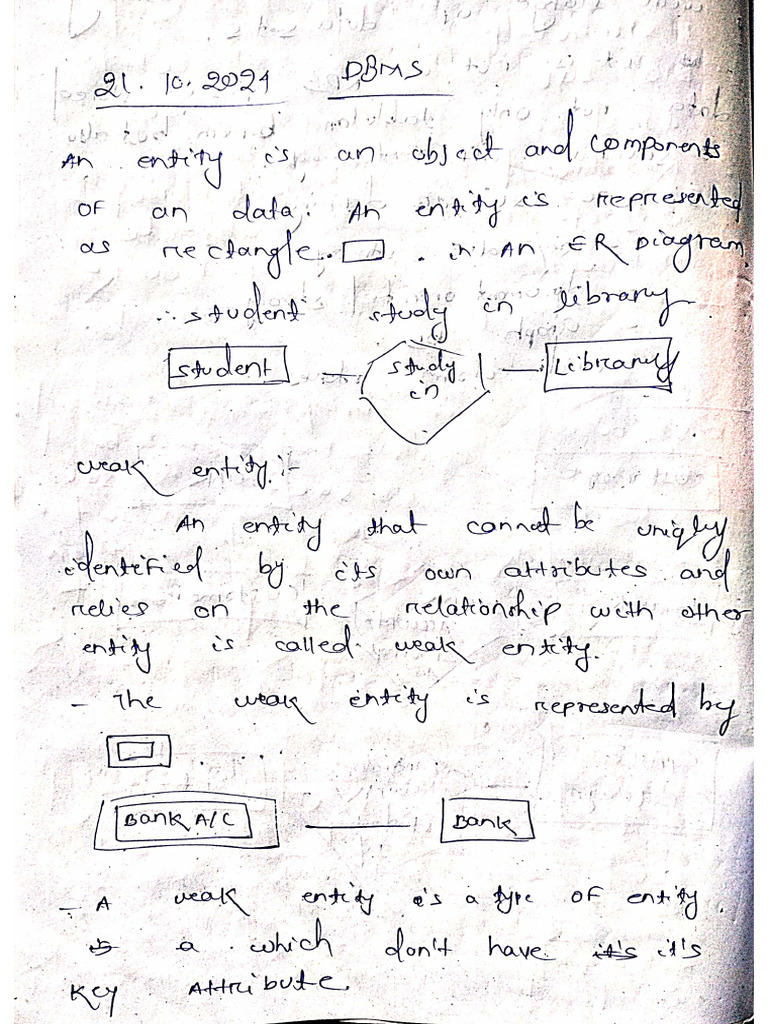 21.10.2021 DBMS
An entity is an object and components
OF an data. An entity is represented
as rectangle.. . in An ER Diagram.
∴ student study in library
student study in Library
weak entity :-
An entity that cannot be uniqly
identified by its own attributes and
relies on the relationship with other
entity is called weak entity.
- The weak entity is represented by
. . . .
Bank A/C Bank
- A weak entity is a type of entity.
is a which don't have it's it's
Key Attribute.